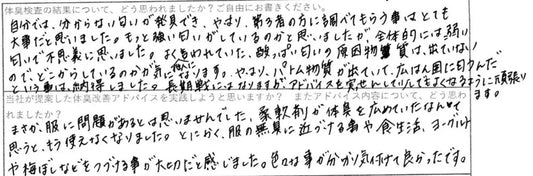 体臭検査の結果について、どう思われましたか？ご自由にお書きください。
自分では、分からない匂いが発見でき、やはり、第3者の方に調べてもらう事はとても
大事だと思いました。もっと強い匂いがしているのかと思いましたが、全体的には、弱い
匂いで不思議に思いました。よく言われていた、酸っぱい匂いの原因物質は、出ていない
ので、どこからしているのかが気になります。やはり、パトム物質が出ていて、広はん囲に匂うんだ
という事は、納得しました。長期戦にはなりますが、アドバイスを実せんしていってもよくなるように頑張り
ます。
当社が提案した体臭改善アドバイスを実践しようと思いますか？ またアドバイス内容について、どう思わ
れましたか？
まさか、服に問題があるとは思いませんでした、柔軟剤が体臭を広めていたなんて
思うと、もう使えなくなりました。とにかく、服の無臭に近づける事や食生活、ヨーグルト
や梅ぼしなどをつづける事が大切だと感じました。色々な事が分かり気付けて良かったです。